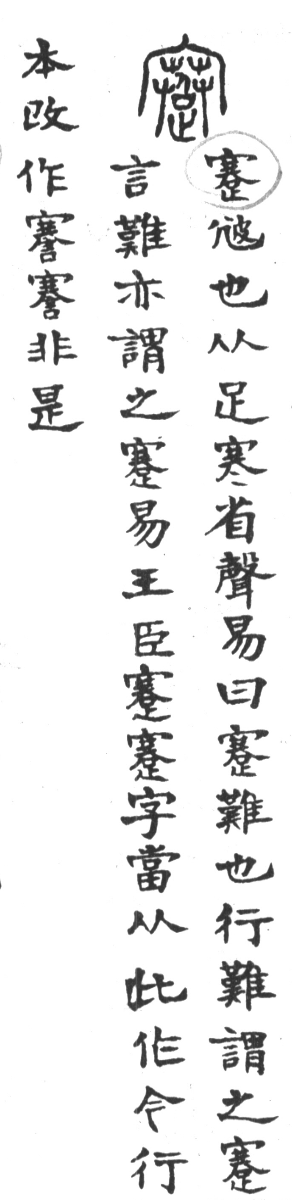 蹇
蹇㝿也从足寒省聲易曰蹇難也行難謂之蹇
言難亦謂之蹇易王臣蹇蹇字當从此作今行
本改作謇謇非是